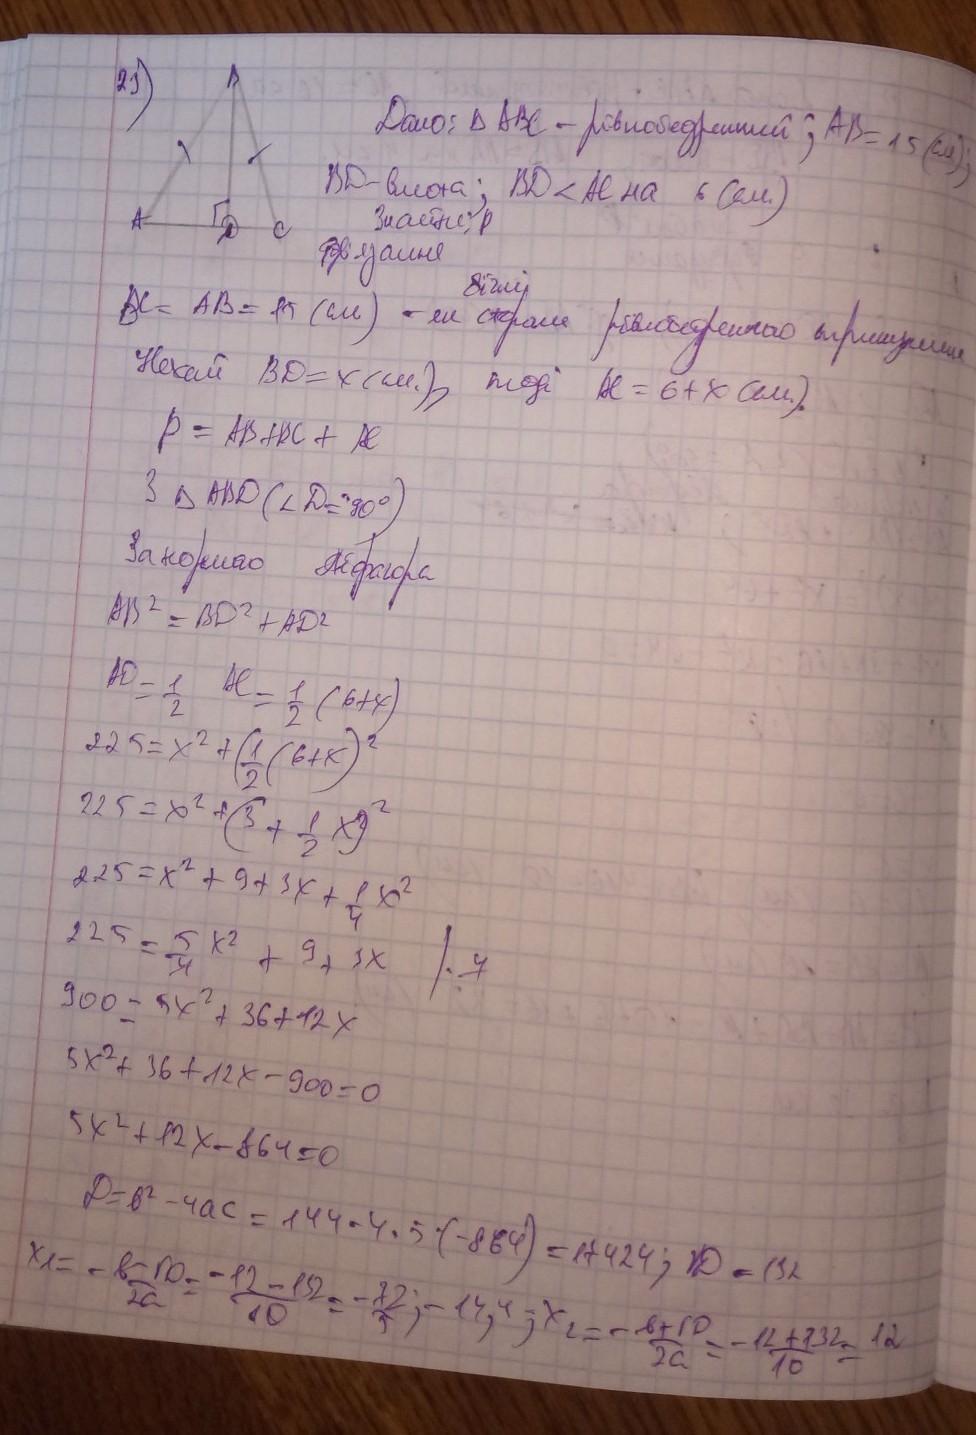 21)
B
A
D
C
Дано: Δ ABC – рівнобедренний; AB = 15 (см);
BD – висота; BD < AC на 6 (см.)
Знайти: P
Розв'язання
BC = AB = 15 (см) – як бічні сторони рівнобедренного трикутника
Нехай BD = x (см.), тоді AC = 6 + x (см.).
P = AB + BC + AC
З Δ ABD (∠D = 90°)
За теоремою Піфагора
AB² = BD² + AD²
AD = 1/2 AC = 1/2 (6+x)
225 = x² + (1/2 (6+x))²
225 = x² + (3 + 1/2 x)²
225 = x² + 9 + 3x + 1/4 x²
225 = 5/4 x² + 9 + 3x /· 4
900 = 5x² + 36 + 12x
5x² + 36 + 12x – 900 = 0
5x² + 12x – 864 = 0
D = b² – 4ac = 144 – 4 · 5 · (–864) = 17424; √D = 132
x₁ = –b–√D/2a = –12–132/10 = –72/5; –14,4; x₂ = –b+√D/2a = –12+132/10 = 12